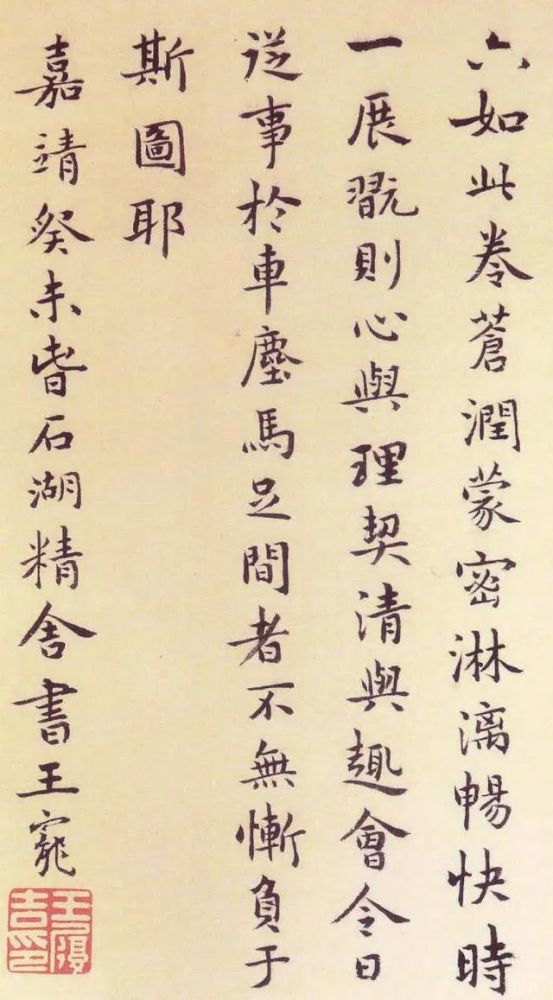 六如此卷蒼潤蒙密淋漓暢快時
一展翫則心與理契清與趣會令日
從事於車塵馬足間者不無慚負于
斯圖耶
嘉靖癸未昔石湖精舍書王寵